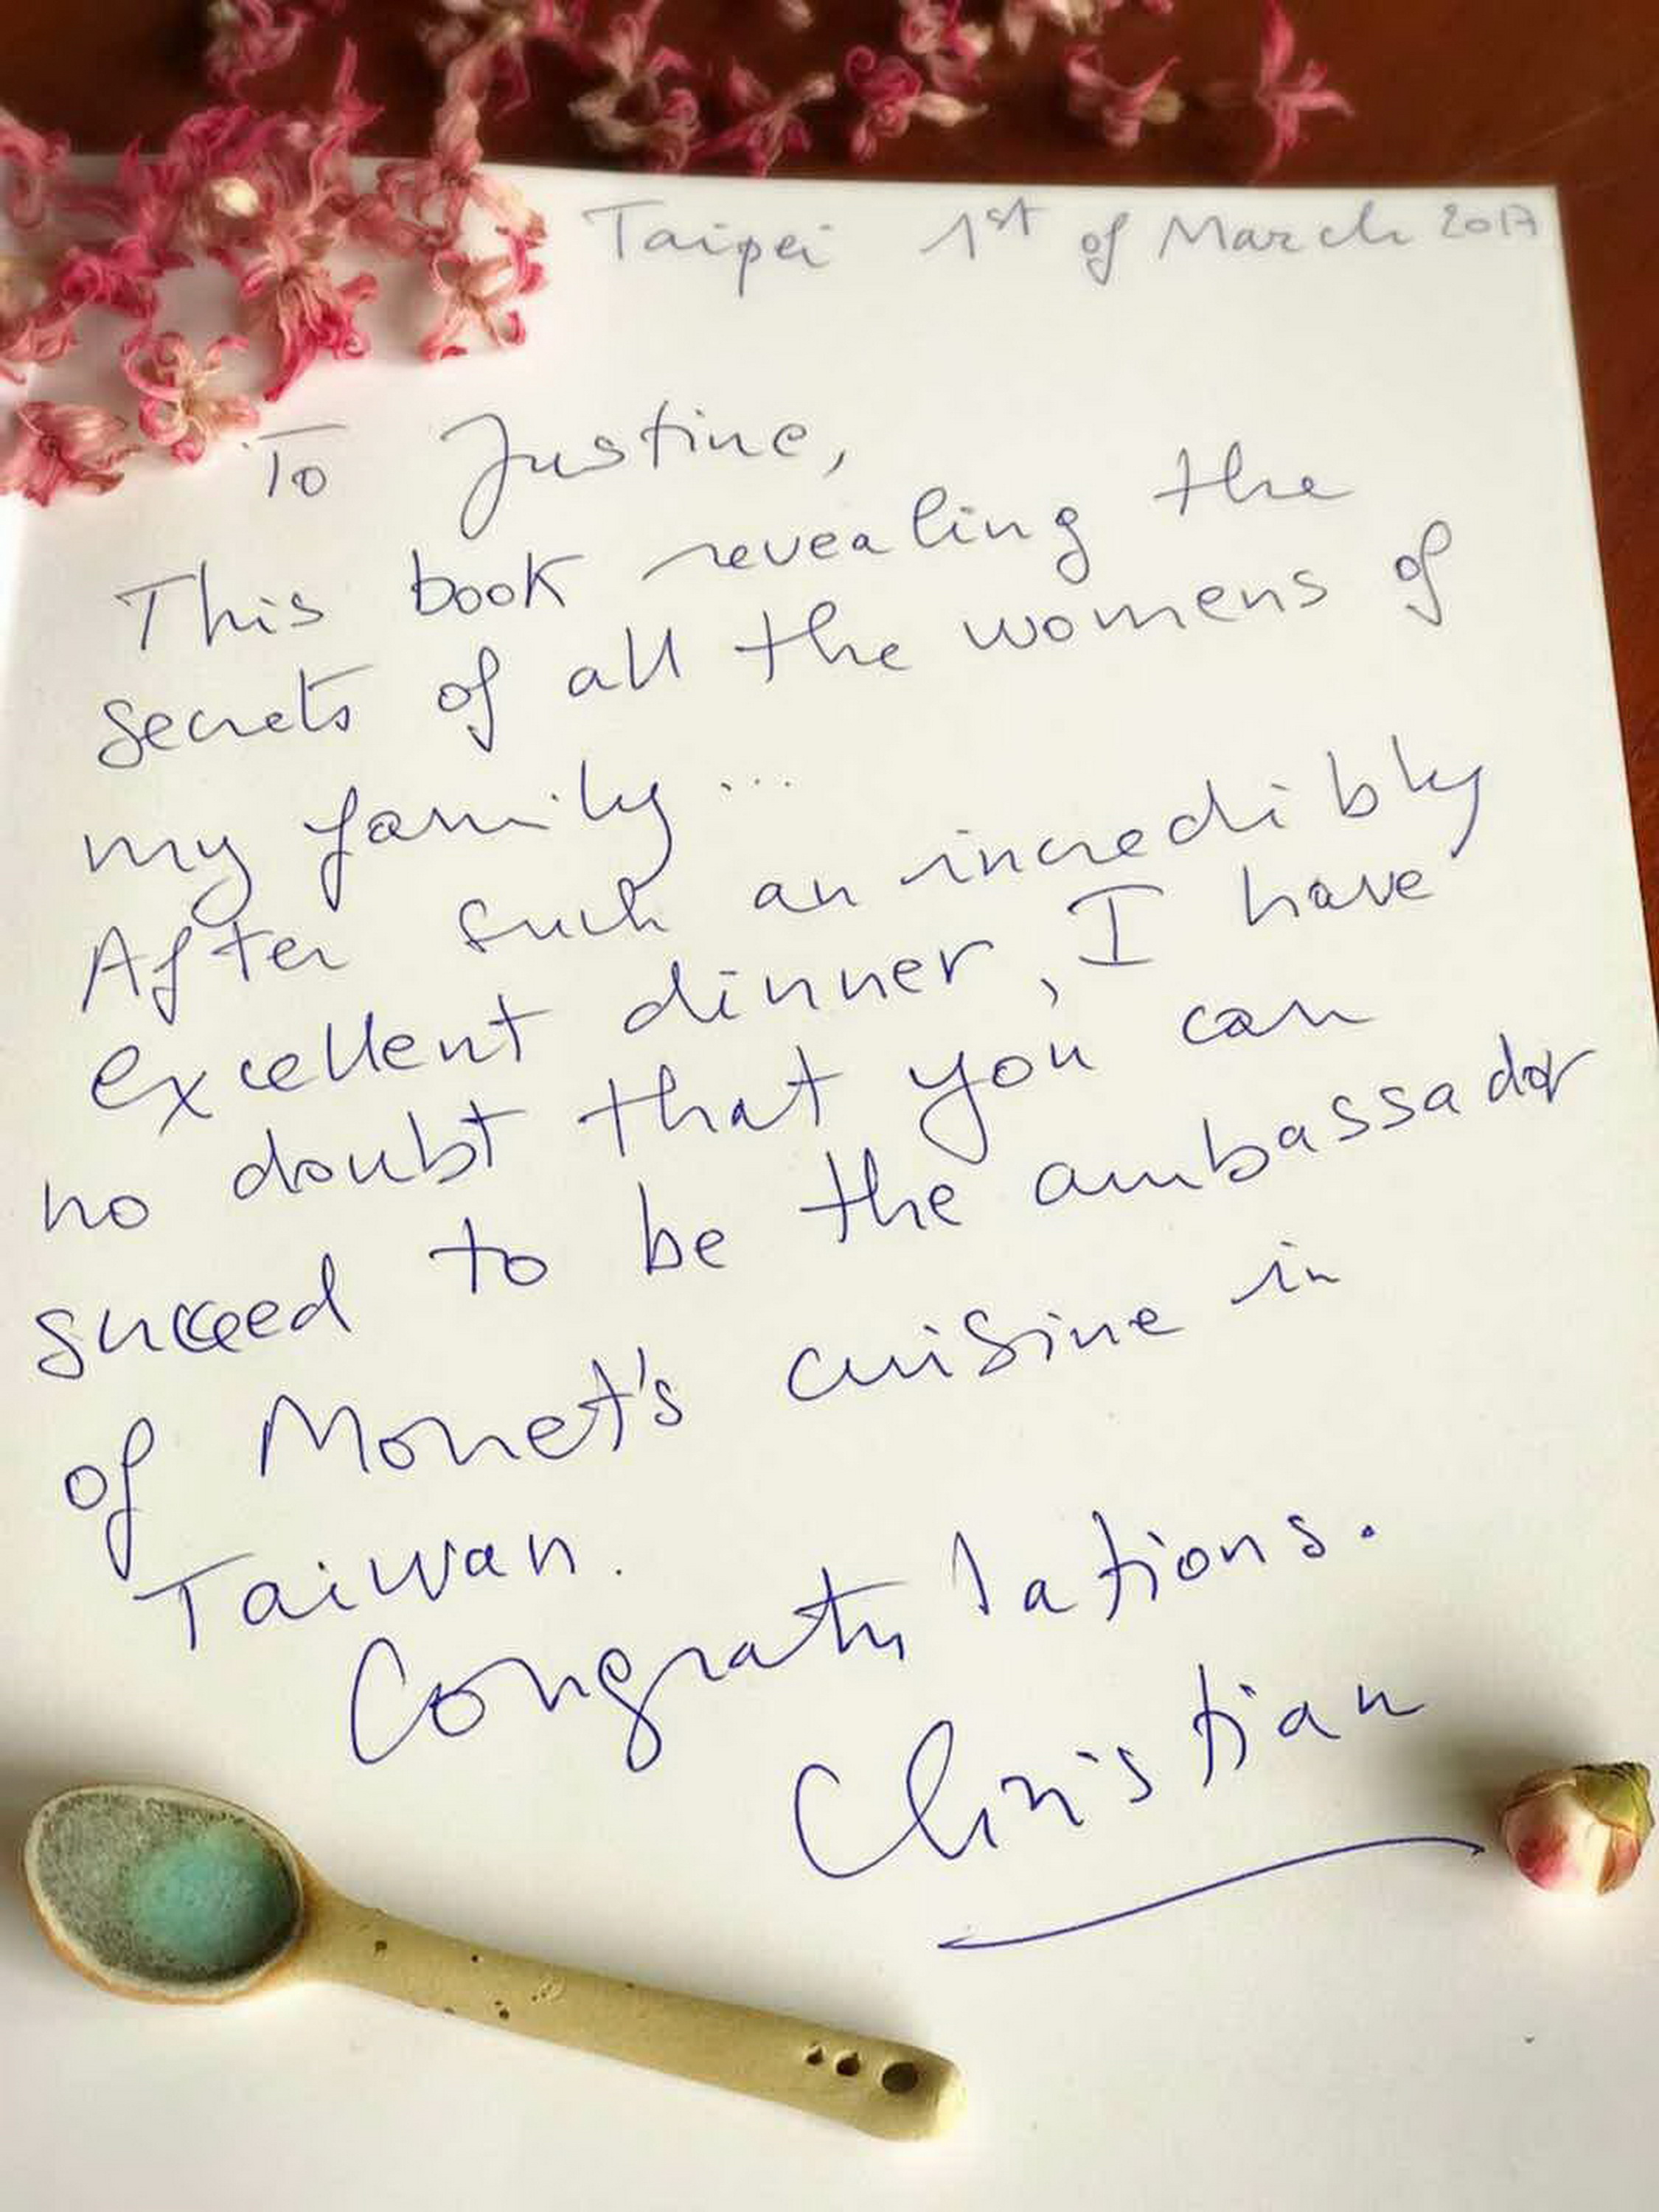 Taipei 1st of March 2017
To Justine,
This book revealing the
secrets of all the womens of
my family...
After such an incredibly
excellent dinner, I have
no doubt that you can
succeed to be the ambassador
of Monet's cuisine in
Taiwan.
Congratulations.
Christian